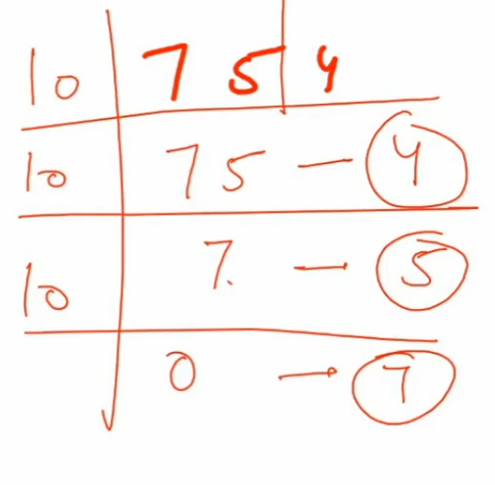 10 7 5 4
10 7 5 — 4
10 7. — 5
0 — 7